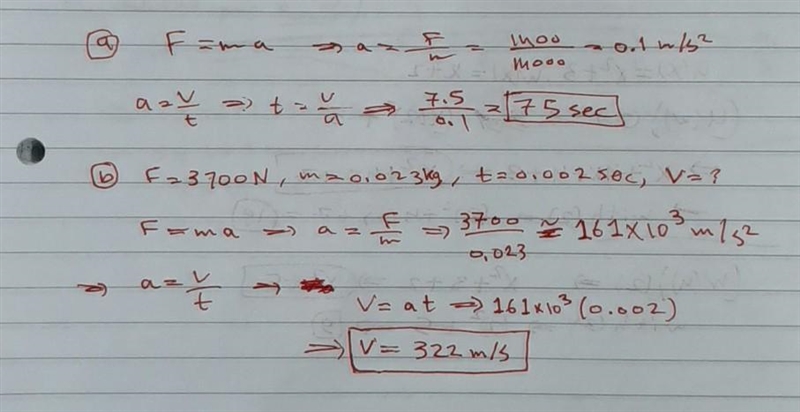 (a) F = ma ⇒ a = F/m = 1400/14000 = 0.1 m/s²
a = V/t ⇒ t = V/a ⇒ 7.5/0.1 = 75 sec
(b) F = 3700N, m = 0.023kg, t = 0.002 sec, V = ?
F = ma → a = F/m ⇒ 3700/0.023 ≅ 161×10³ m/s²
⇒ a = V/t → V = at ⇒ 161×10³ (0.002)
⇒ V = 322 m/s